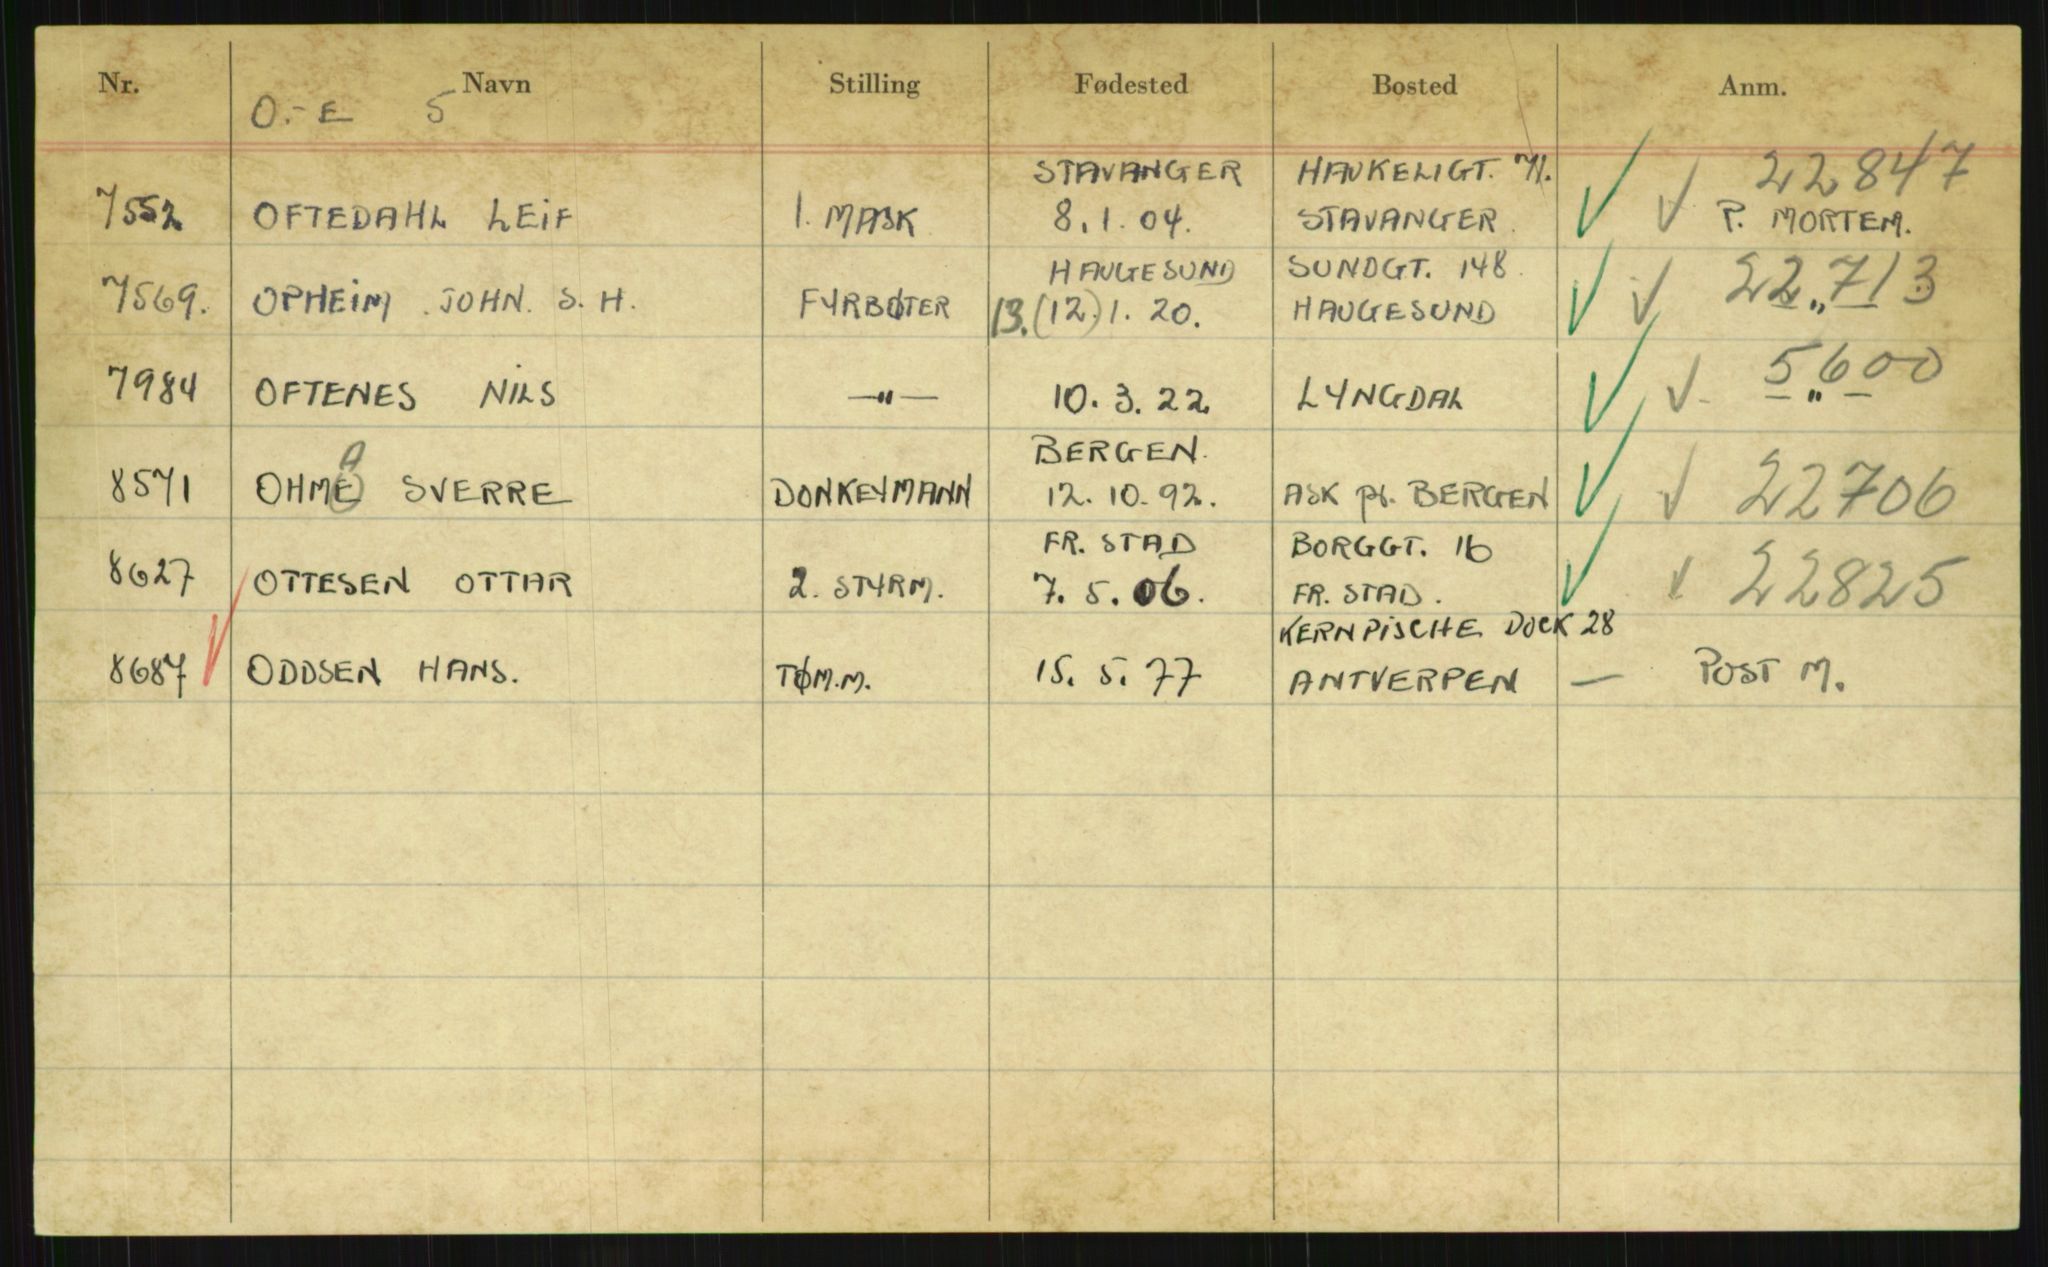 Nr. Navn Stilling Fødested Bosted Anm.
O.-E 5
STAVANGER HAUKELIGT. 71. 22847
7552 OFTEDAHL LEIF 1. MASK 8.1.04. STAVANGER. P. MORTEM.
HAUGESUND SUNDGT. 148. 22713
7569. OPHEIM JOHN. S. H. FYRBØTER 13.(12.)1.20. HAUGESUND — " —
5600
7984 OFTENES NILS — " — 10.3.22. LYNGDAL — " —
A BERGEN.
8571 OHME SVERRE DONKEYMANN 12.10.92. ASK pr. BERGEN 22706
FR. STAD BORGGT. 16
8627 OTTESEN OTTAR 2. STYRM. 7.5.06. FR. STAD. 22825
DOCK 28
8687 ODDSEN HANS. TØM.M. 15.5.77 ANTVERPEN — POST M.